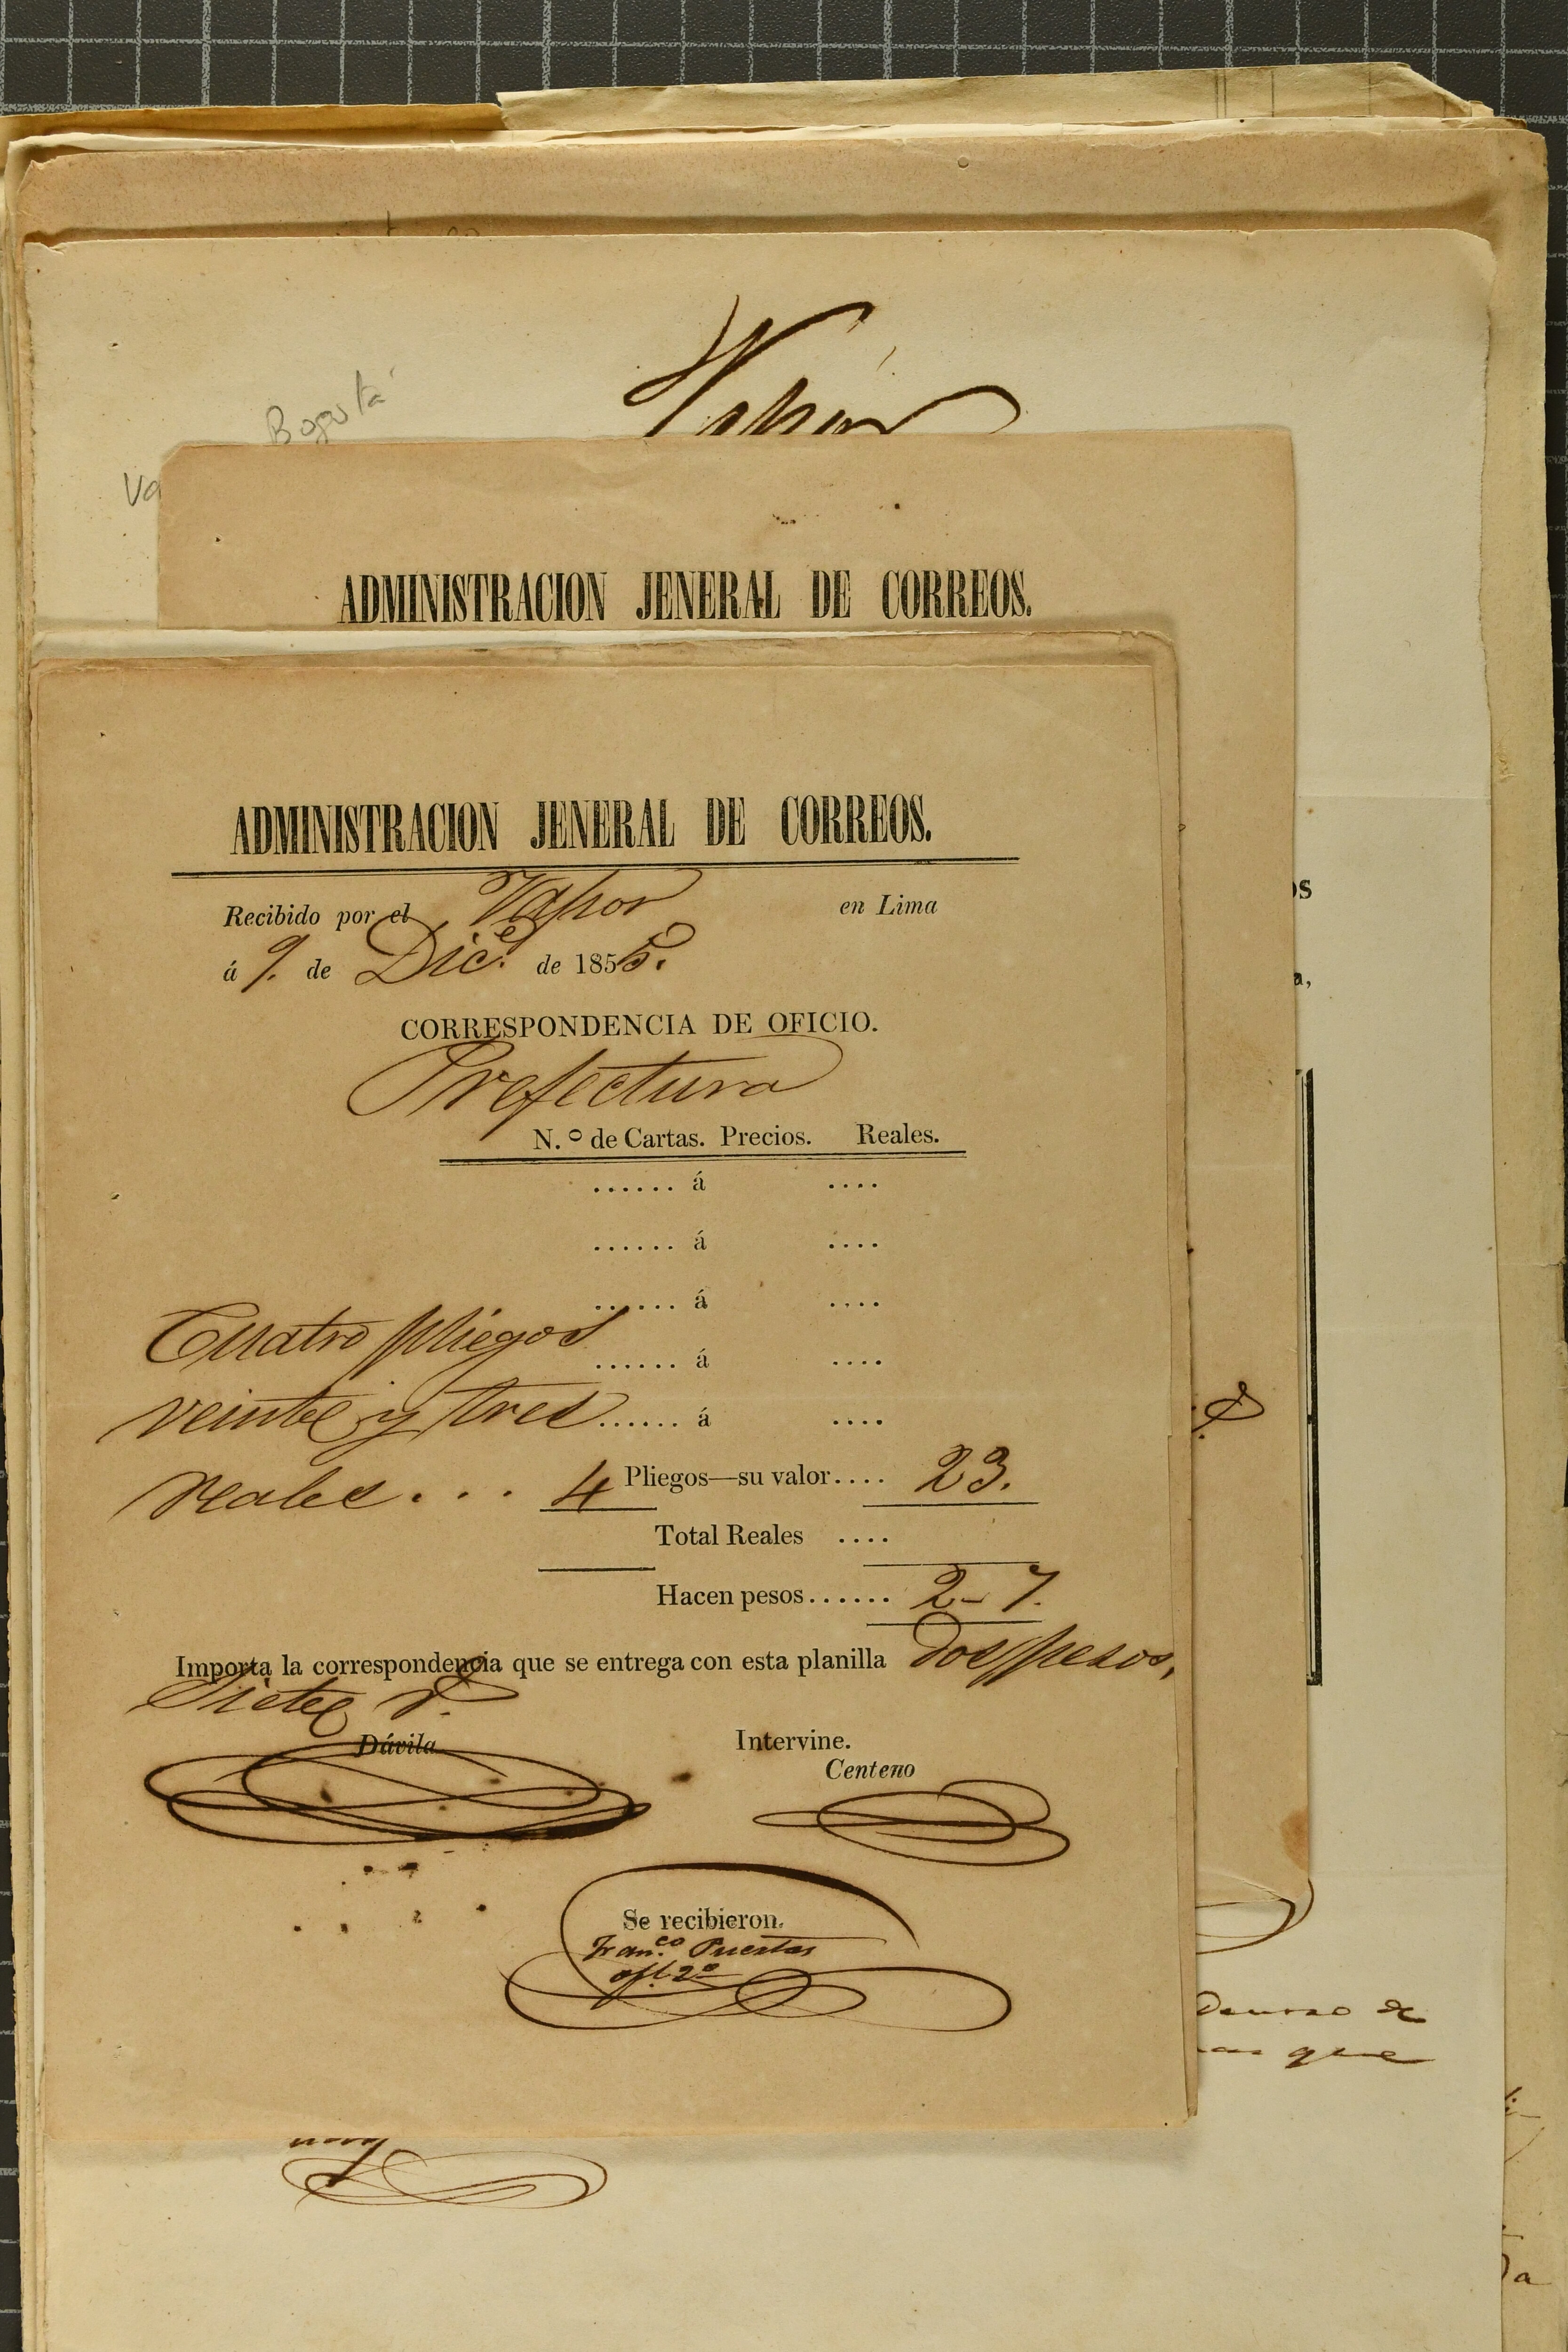 Bogotá
Vapor
ADMINISTRACION JENERAL DE CORREOS.
ADMINISTRACION JENERAL DE CORREOS.
Recibido por el Vapor en Lima
á 9. de Dic.e de 1855.
CORRESPONDENCIA DE OFICIO.
Prefectura
N.º de Cartas. Precios. Reales.
...... á ....
...... á ....
...... á ....
Cuatro pliegos ...... á ....
veinte y tres ...... á ....
reales... 4 Pliegos—su valor.... 23.
Total Reales ....
Hacen pesos...... 2-7.
Importa la correspondencia que se entrega con esta planilla dos pesos,
Siete r.
Dávila Intervine.
Centeno
Se recibieron.
Fran.co Puertas
ofl. 2º
que